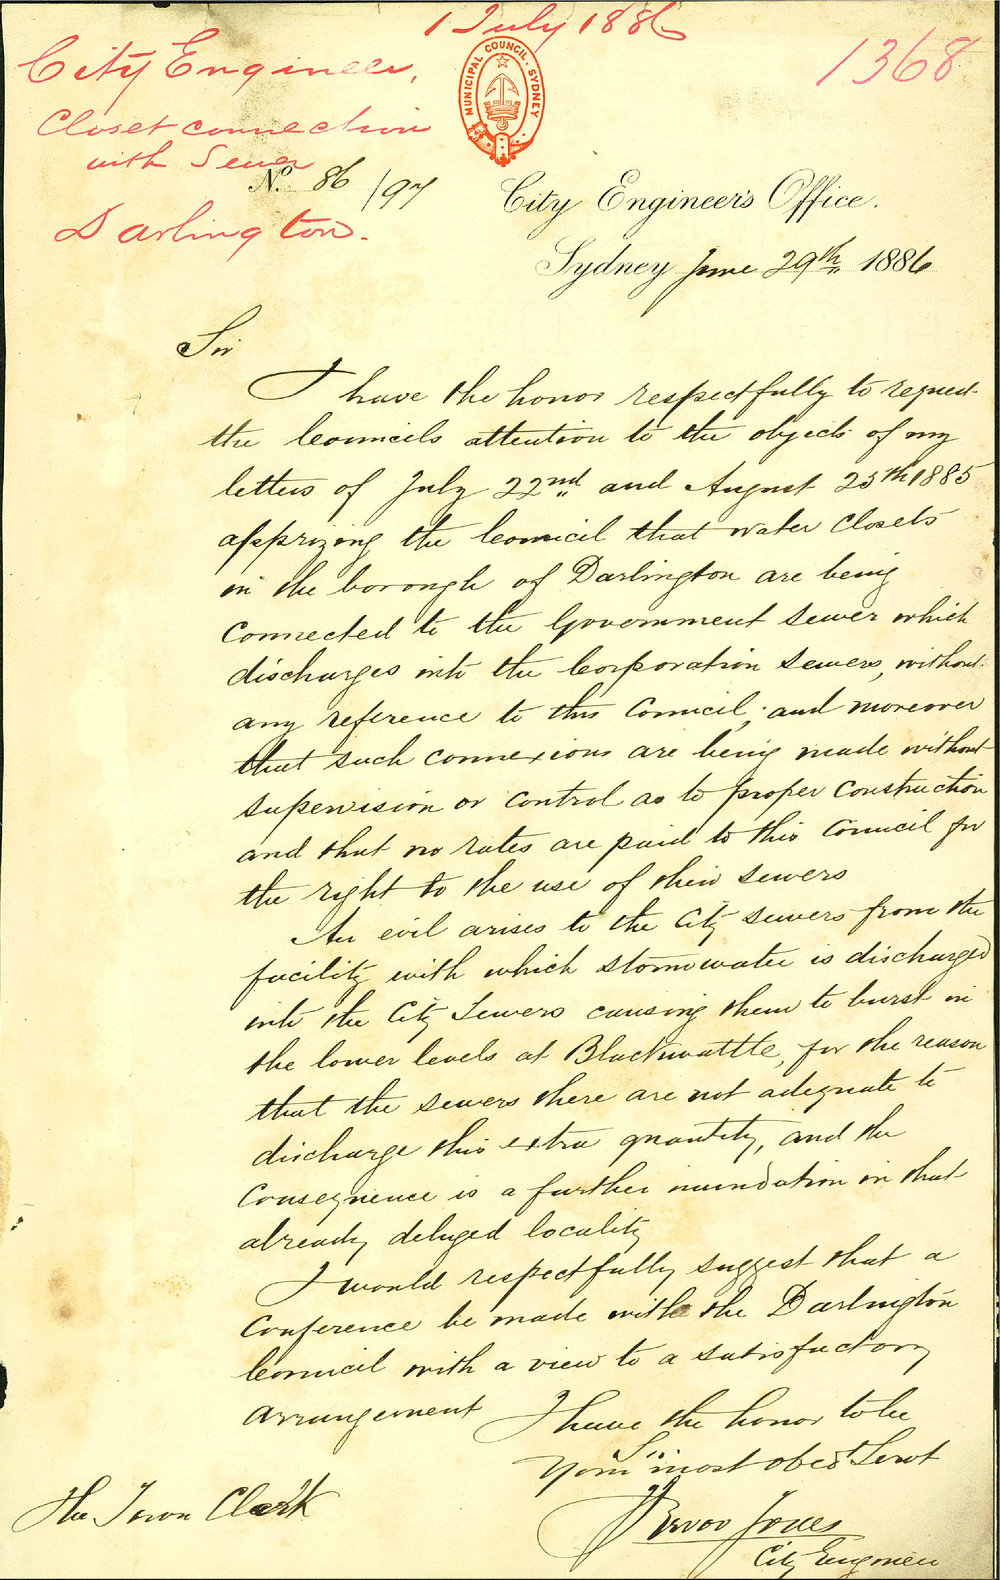 1 July 1886
City Engineer,
1368
MUNICIPAL COUNCIL. SYDNEY
Closet connection
with Sewer
No. 86/97
Darlington.
City Engineer's Office.
Sydney June 29th 1886
Sir
I have the honor respectfully to request
the Councils attention to the objects of my
letters of July 22nd and August 25th 1885
apprizing the Council that water closets
in the borough of Darlington are being
connected to the Government sewer which
discharges into the Corporation sewers, without
any reference to this Council; and moreover
that such connexions are being made without
supervision or control as to proper construction
and that no rates are paid to this Council for
the right to the use of their sewers
An evil arises to the City sewers from the
facility with which stormwater is discharged
into the City Sewers causing them to burst in
the lower levels at Blackwattle, for the reason
that the sewers there are not adequate to
discharge this extra quantity, and the
consequence is a further inundation in that
already deluged locality
I would respectfully suggest that a
conference be made with the Darlington
Council with a view to a satisfactory
arrangement
I have the honor to be
Sir
Your most obedt Servt
Trevor Jones
City Engineer
The Town Clerk